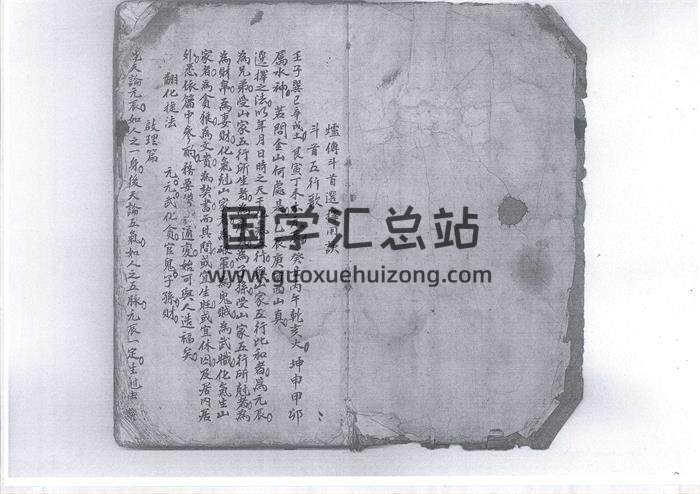 爐傳斗首選
斗首五行歌
壬子巽巳辛戌土 艮寅丁未 癸 丙午乾亥火 坤申甲卯
屬水神 若問金山何處是 乙辰庚酉山真
選擇之法以年月日時之天干 行 山家五行比和者為元辰
為兄弟受山家五行所生者為 為子孫受山家五行所尅者為
為財帛為妻財化氣尅山家 為鬼賊為武職化氣生山
家者為貪狼為文貴為契書而其間或宜生旺或宜休囚及居內居
外悉依篇中參 務要 通處始可與人造福矣
翻化提法 元元武化貪官鬼子孫財
啟理篇
先天論元辰如人之一身後天論五氣如人之五脉元辰一定生
國学汇总站
www.guoxuehuizong.com